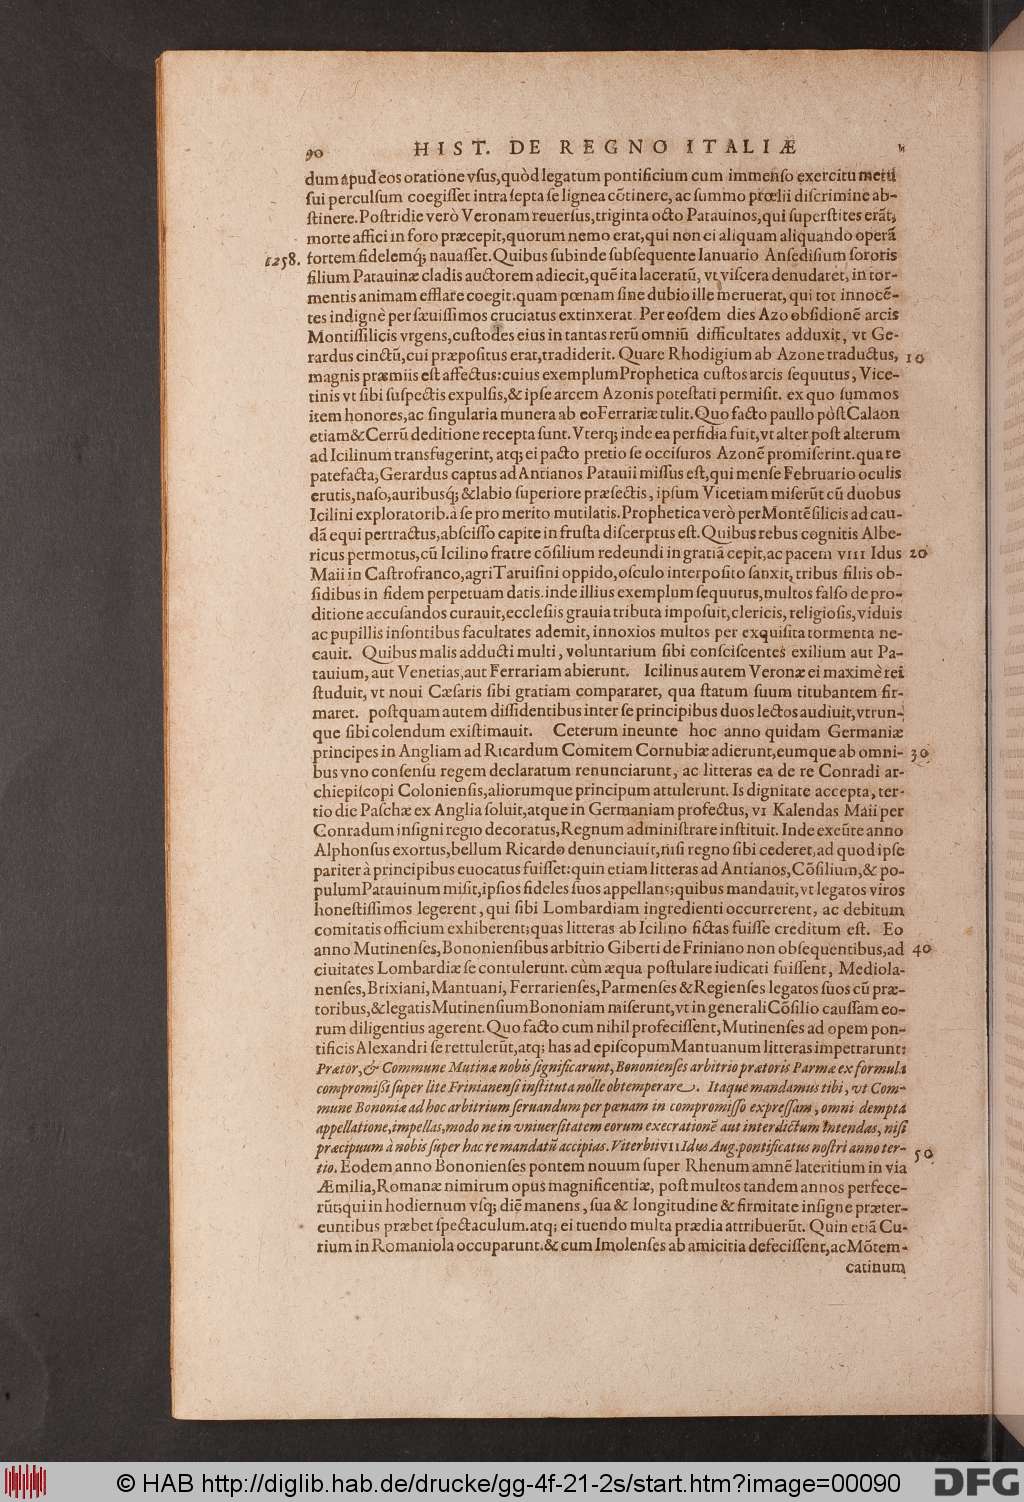 90 HIST. DE REGNO ITALIÆ
dum apud eos oratione vſus, quòd legatum pontificium cum immenſo exercitu metu
ſui perculſum coegiſſet intra ſepta ſe lignea cõtinere, ac ſummo prœlii diſcrimine ab-
ſtinere. Poſtridie verò Veronam reuerſus, triginta octo Patauinos, qui ſuperſtites erãt,
morte affici in foro præcepit, quorum nemo erat, qui non ei aliquam aliquando operã
1258. fortem fidelemq́; nauaſſet. Quibus ſubinde ſubſequente Ianuario Anſediſium ſororis
filium Patauinæ cladis auctorem adiecit, quẽ ita laceratũ, vt viſcera denudaret, in tor-
mentis animam efflare coegit. quam pœnam ſine dubio ille meruerat, qui tot innocẽ-
tes indignè per ſæuiſſimos cruciatus extinxerat. Per eoſdem dies Azo obſidionẽ arcis
Montiſſilicis vrgens, cuſtodes eius in tantas rerũ omniũ difficultates adduxit, vt Ge-
rardus cinctũ, cui præpoſitus erat, tradiderit. Quare Rhodigium ab Azone traductus, 10
magnis præmiis eſt affectus: cuius exemplum Prophetica cuſtos arcis ſequutus, Vice-
tinis vt ſibi ſuſpectis expulſis, & ipſe arcem Azonis poteſtati permiſit. ex quo ſummos
item honores, ac ſingularia munera ab eo Ferrariæ tulit. Quo facto paullo pòſt Calaon
etiam & Cerrũ deditione recepta ſunt. Vterq; inde ea perfidia fuit, vt alter poſt alterum
ad Icilinum transfugerint, atq; ei pacto pretio ſe occiſuros Azonẽ promiſerint. qua re
patefacta, Gerardus captus ad Antianos Patauii miſſus eſt, qui menſe Februario oculis
erutis, naſo, auribusq́; & labio ſuperiore præſectis, ipſum Vicetiam miſerũt cũ duobus
Icilini exploratorib. à ſe pro merito mutilatis. Prophetica verò per Montẽſilicis ad cau-
dã equi pertractus, abſciſſo capite in fruſta diſcerptus eſt. Quibus rebus cognitis Albe-
ricus permotus, cũ Icilino fratre cõſilium redeundi in gratiã cepit, ac pacem VIII Idus 20
Maii in Caſtrofranco, agri Taruiſini oppido, oſculo interpoſito ſanxit, tribus filiis ob-
ſidibus in fidem perpetuam datis. inde illius exemplum ſequutus, multos falſo de pro-
ditione accuſandos curauit, eccleſiis grauia tributa impoſuit, clericis, religioſis, viduis
ac pupillis inſontibus facultates ademit, innoxios multos per exquiſita tormenta ne-
cauit. Quibus malis adducti multi, voluntarium ſibi conſciſcentes exilium aut Pa-
tauium, aut Venetias, aut Ferrariam abierunt. Icilinus autem Veronæ ei maximè rei
ſtuduit, vt noui Cæſaris ſibi gratiam compararet, qua ſtatum ſuum titubantem fir-
maret. poſtquam autem diſſidentibus inter ſe principibus duos lectos audiuit, vtrun-
que ſibi colendum exiſtimauit. Ceterum ineunte hoc anno quidam Germaniæ
principes in Angliam ad Ricardum Comitem Cornubiæ adierunt, eumque ab omni- 30
bus vno conſenſu regem declaratum renunciarunt, ac litteras ea de re Conradi ar-
chiepiſcopi Colonienſis, aliorumque principum attulerunt. Is dignitate accepta, ter-
tio die Paſchæ ex Anglia ſoluit, atque in Germaniam profectus, VI Kalendas Maii per
Conradum inſigni regio decoratus, Regnum adminiſtrare inſtituit. Inde exeũte anno
Alphonſus exortus, bellum Ricardo denunciauit, niſi regno ſibi cederet, ad quod ipſe
pariter à principibus euocatus fuiſſet: quin etiam litteras ad Antianos, Cõſilium, & po-
pulum Patauinum miſit, ipſios fideles ſuos appellans; quibus mandauit, vt legatos viros
honeſtiſſimos legerent, qui ſibi Lombardiam ingredienti occurrerent, ac debitum
comitatis officium exhiberent; quas litteras ab Icilino fictas fuiſſe creditum eſt. Eo
anno Mutinenſes, Bononienſibus arbitrio Giberti de Friniano non obſequentibus, ad 40
ciuitates Lombardiæ ſe contulerunt. cùm æqua poſtulare iudicati fuiſſent, Mediola-
nenſes, Brixiani, Mantuani, Ferrarienſes, Parmenſes & Regienſes legatos ſuos cũ præ-
toribus, & legatis Mutinenſium Bononiam miſerunt, vt in generali Cõſilio cauſſam eo-
rum diligentius agerent. Quo facto cum nihil profeciſſent, Mutinenſes ad opem pon-
tificis Alexandri ſe rettulerũt, atq; has ad epiſcopum Mantuanum litteras impetrarunt:
Prætor, & Commune Mutinæ nobis ſignificarunt, Bononienſes arbitrio prætoris Parmæ ex formula
compromiſsi ſuper lite Frinianenſi inſtituta nolle obtemperare. Itaque mandamus tibi, vt Com-
mune Bononiæ ad hoc arbitrium ſeruandum per pœnam in compromiſſo expreſſam, omni dempta
appellatione, impellas, modo ne in vniuerſitatem eorum execrationẽ aut interdictum intendas, niſi
præcipuum à nobis ſuper hac re mandatũ accipias. Viterbii VII Idus Aug. pontificatus noſtri anno ter-
tio. Eodem anno Bononienſes pontem nouum ſuper Rhenum amnẽ lateritium in via 50
Æmilia, Romanæ nimirum opus magnificentiæ, poſt multos tandem annos perfece-
rũt; qui in hodiernum vſq; diẽ manens, ſua & longitudine & firmitate inſigne præter-
euntibus præbet ſpectaculum. atq; ei tuendo multa prædia attribuerũt. Quin etiã Cu-
rium in Romaniola occuparunt. & cum Imolenſes ab amicitia defeciſſent, ac Mõtem-
catinum
© HAB http://diglib.hab.de/drucke/gg-4f-21-2s/start.htm?image=00090
DFG